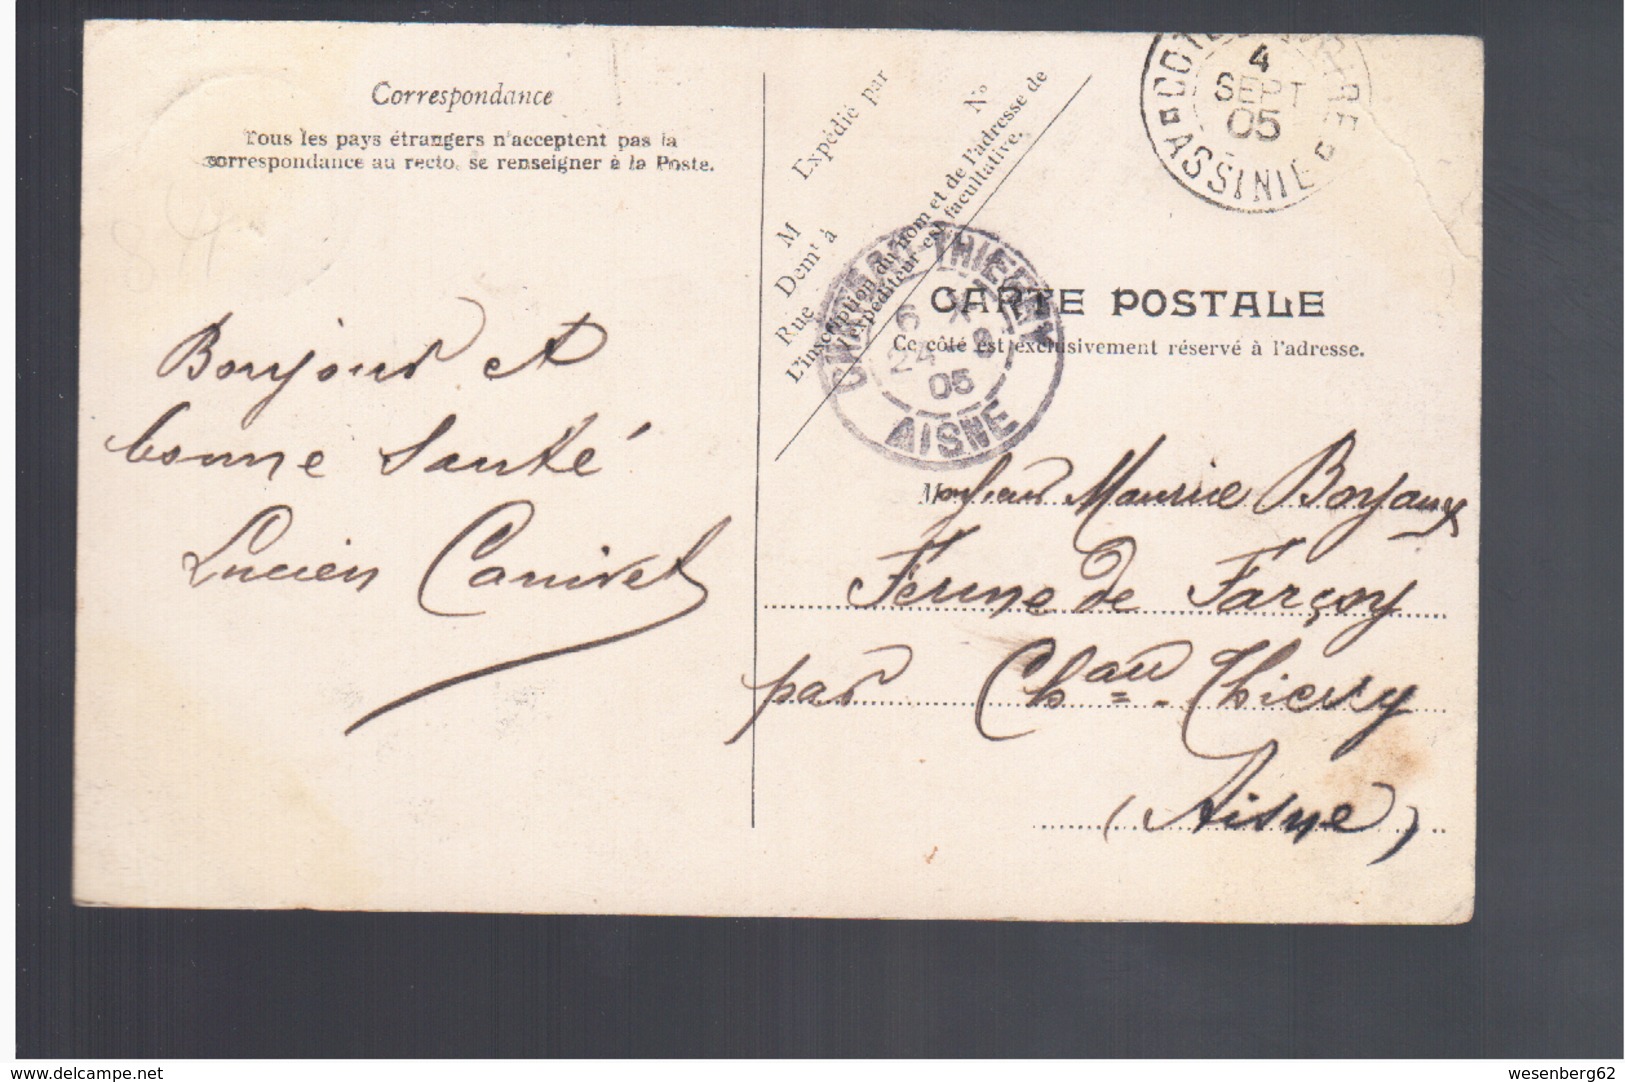 Correspondance
Tous les pays étrangers n'acceptent pas la
correspondance au recto, se renseigner à la Poste.
Bonjour et
bonne Santé
Lucien Canivet
Expédié par
N°
M
Demt à
Rue
L'inscription du nom et de l'adresse de
l'expéditeur est facultative.
4
SEPT
05
ASSINIE
CHATEAU-THIERRY
24 - 9
05
AISNE
CARTE POSTALE
Ce côté est exclusivement réservé à l'adresse.
Monsieur Maurice Boyaux
Ferme de Farçoy
par Chau=-Thierry
(Aisne)
delcampe.net
wesenberg62